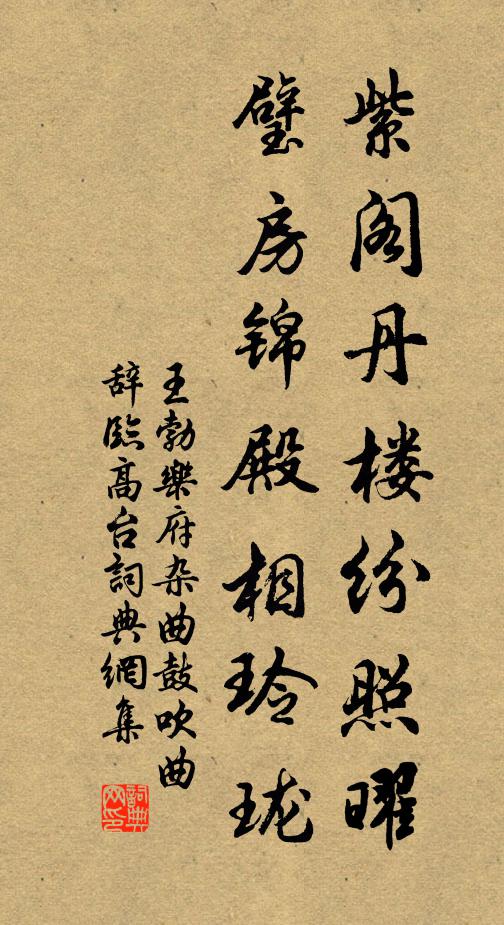 紫阁丹楼纷照曜
璧房锦殿相玲珑
王勃樂府杂曲鼓吹曲
辞临高台詞典網集
詞典网印